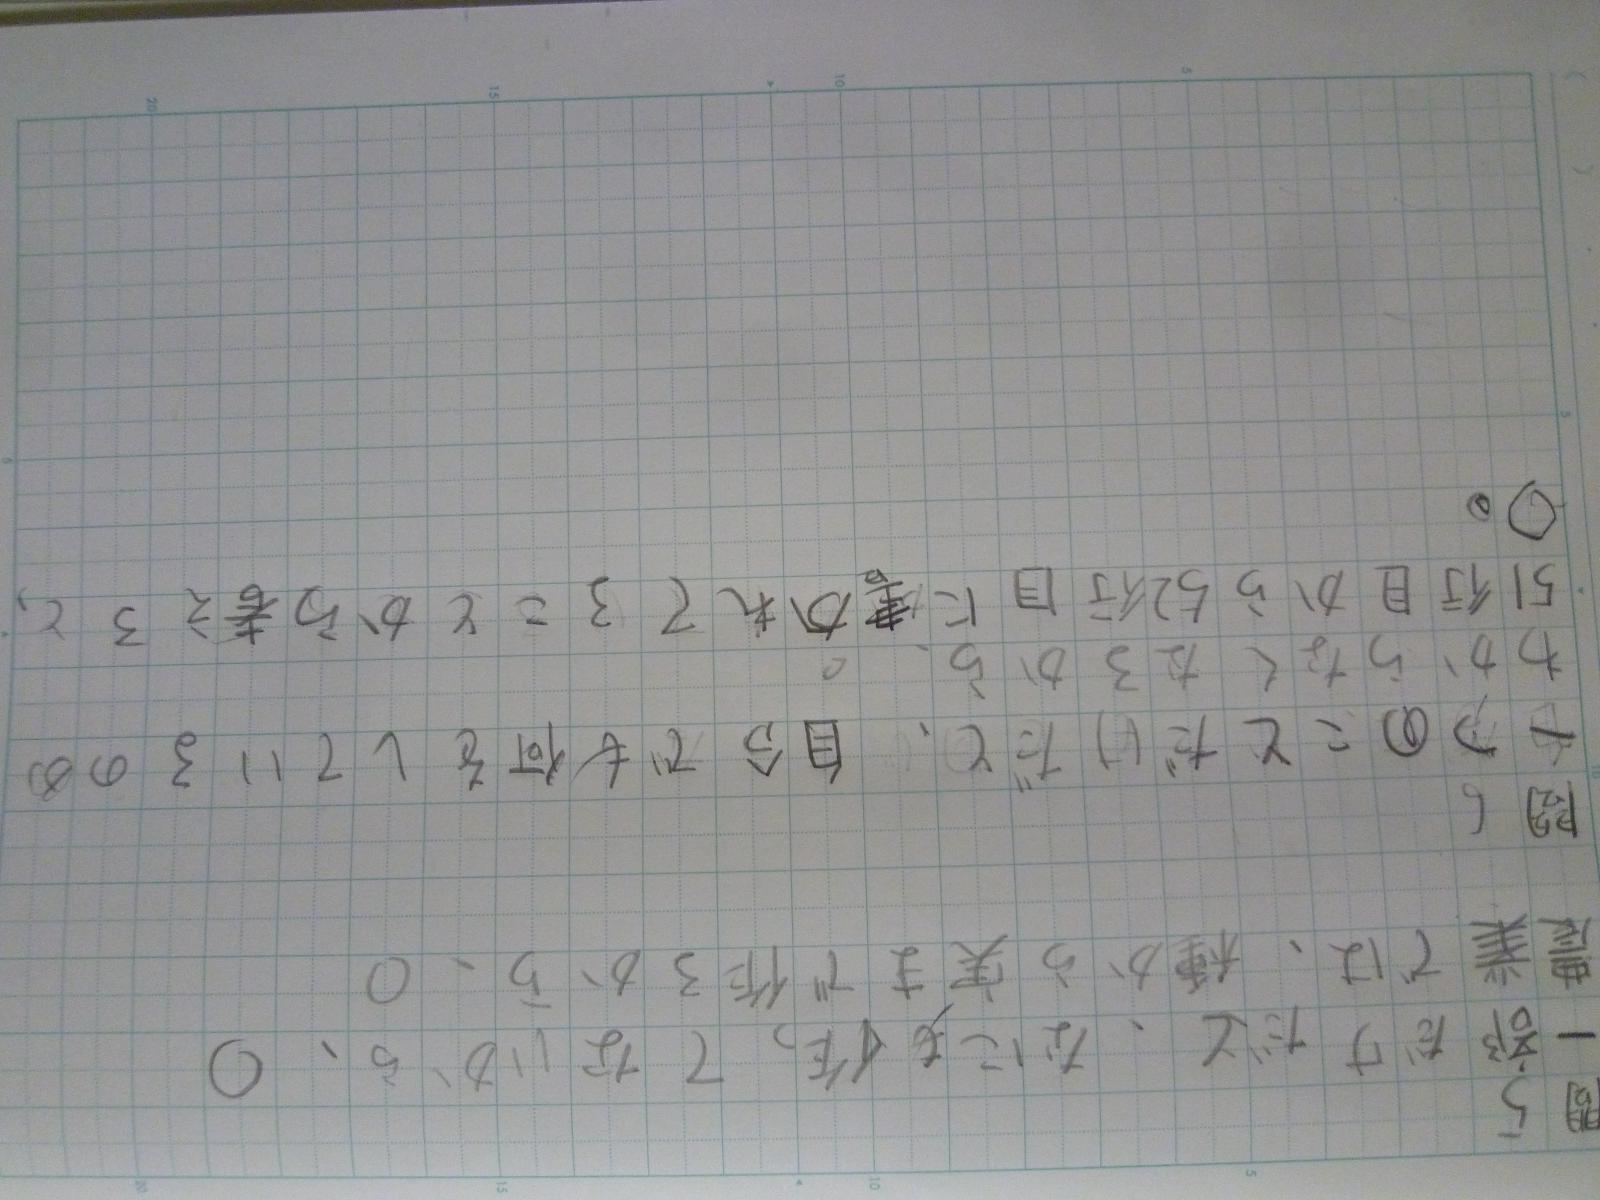 問5
一部だけだと、なにも作ってないから、〇
農業では、種から実まで作るから、〇
問6
一つのことだけだと、自分でも何をしているのか
わからなくなるから。
51行目から52行目に書かれてることから考えると、
〇。